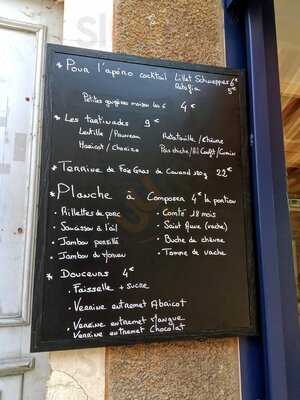 * Pour l'apéro cocktail Lillet Schweppes 6€
Ratafia 5€
Petites gougères maison les 6 4€
* Les tartinades 9€
Lentille / Pruneau Ratatouille / Chèvre
Haricot / Chorizo Pois chiche / Ail Confit / Cumin
* Terrine de Foie Gras de Canard 120g 22€
* Planche à composer 4€ la portion
• Rillettes de porc • Comté 18 mois
• Saucisson à l'ail • Saint Aune (vache)
• Jambon persillé • Buche de chèvre
• Jambon du Morvan • Tomme de vache
* Douceurs 4€
• Faisselle + sucre
• Verrine entremet Abricot
• Verrine entremet Mangue
Verrine entremet Chocolat